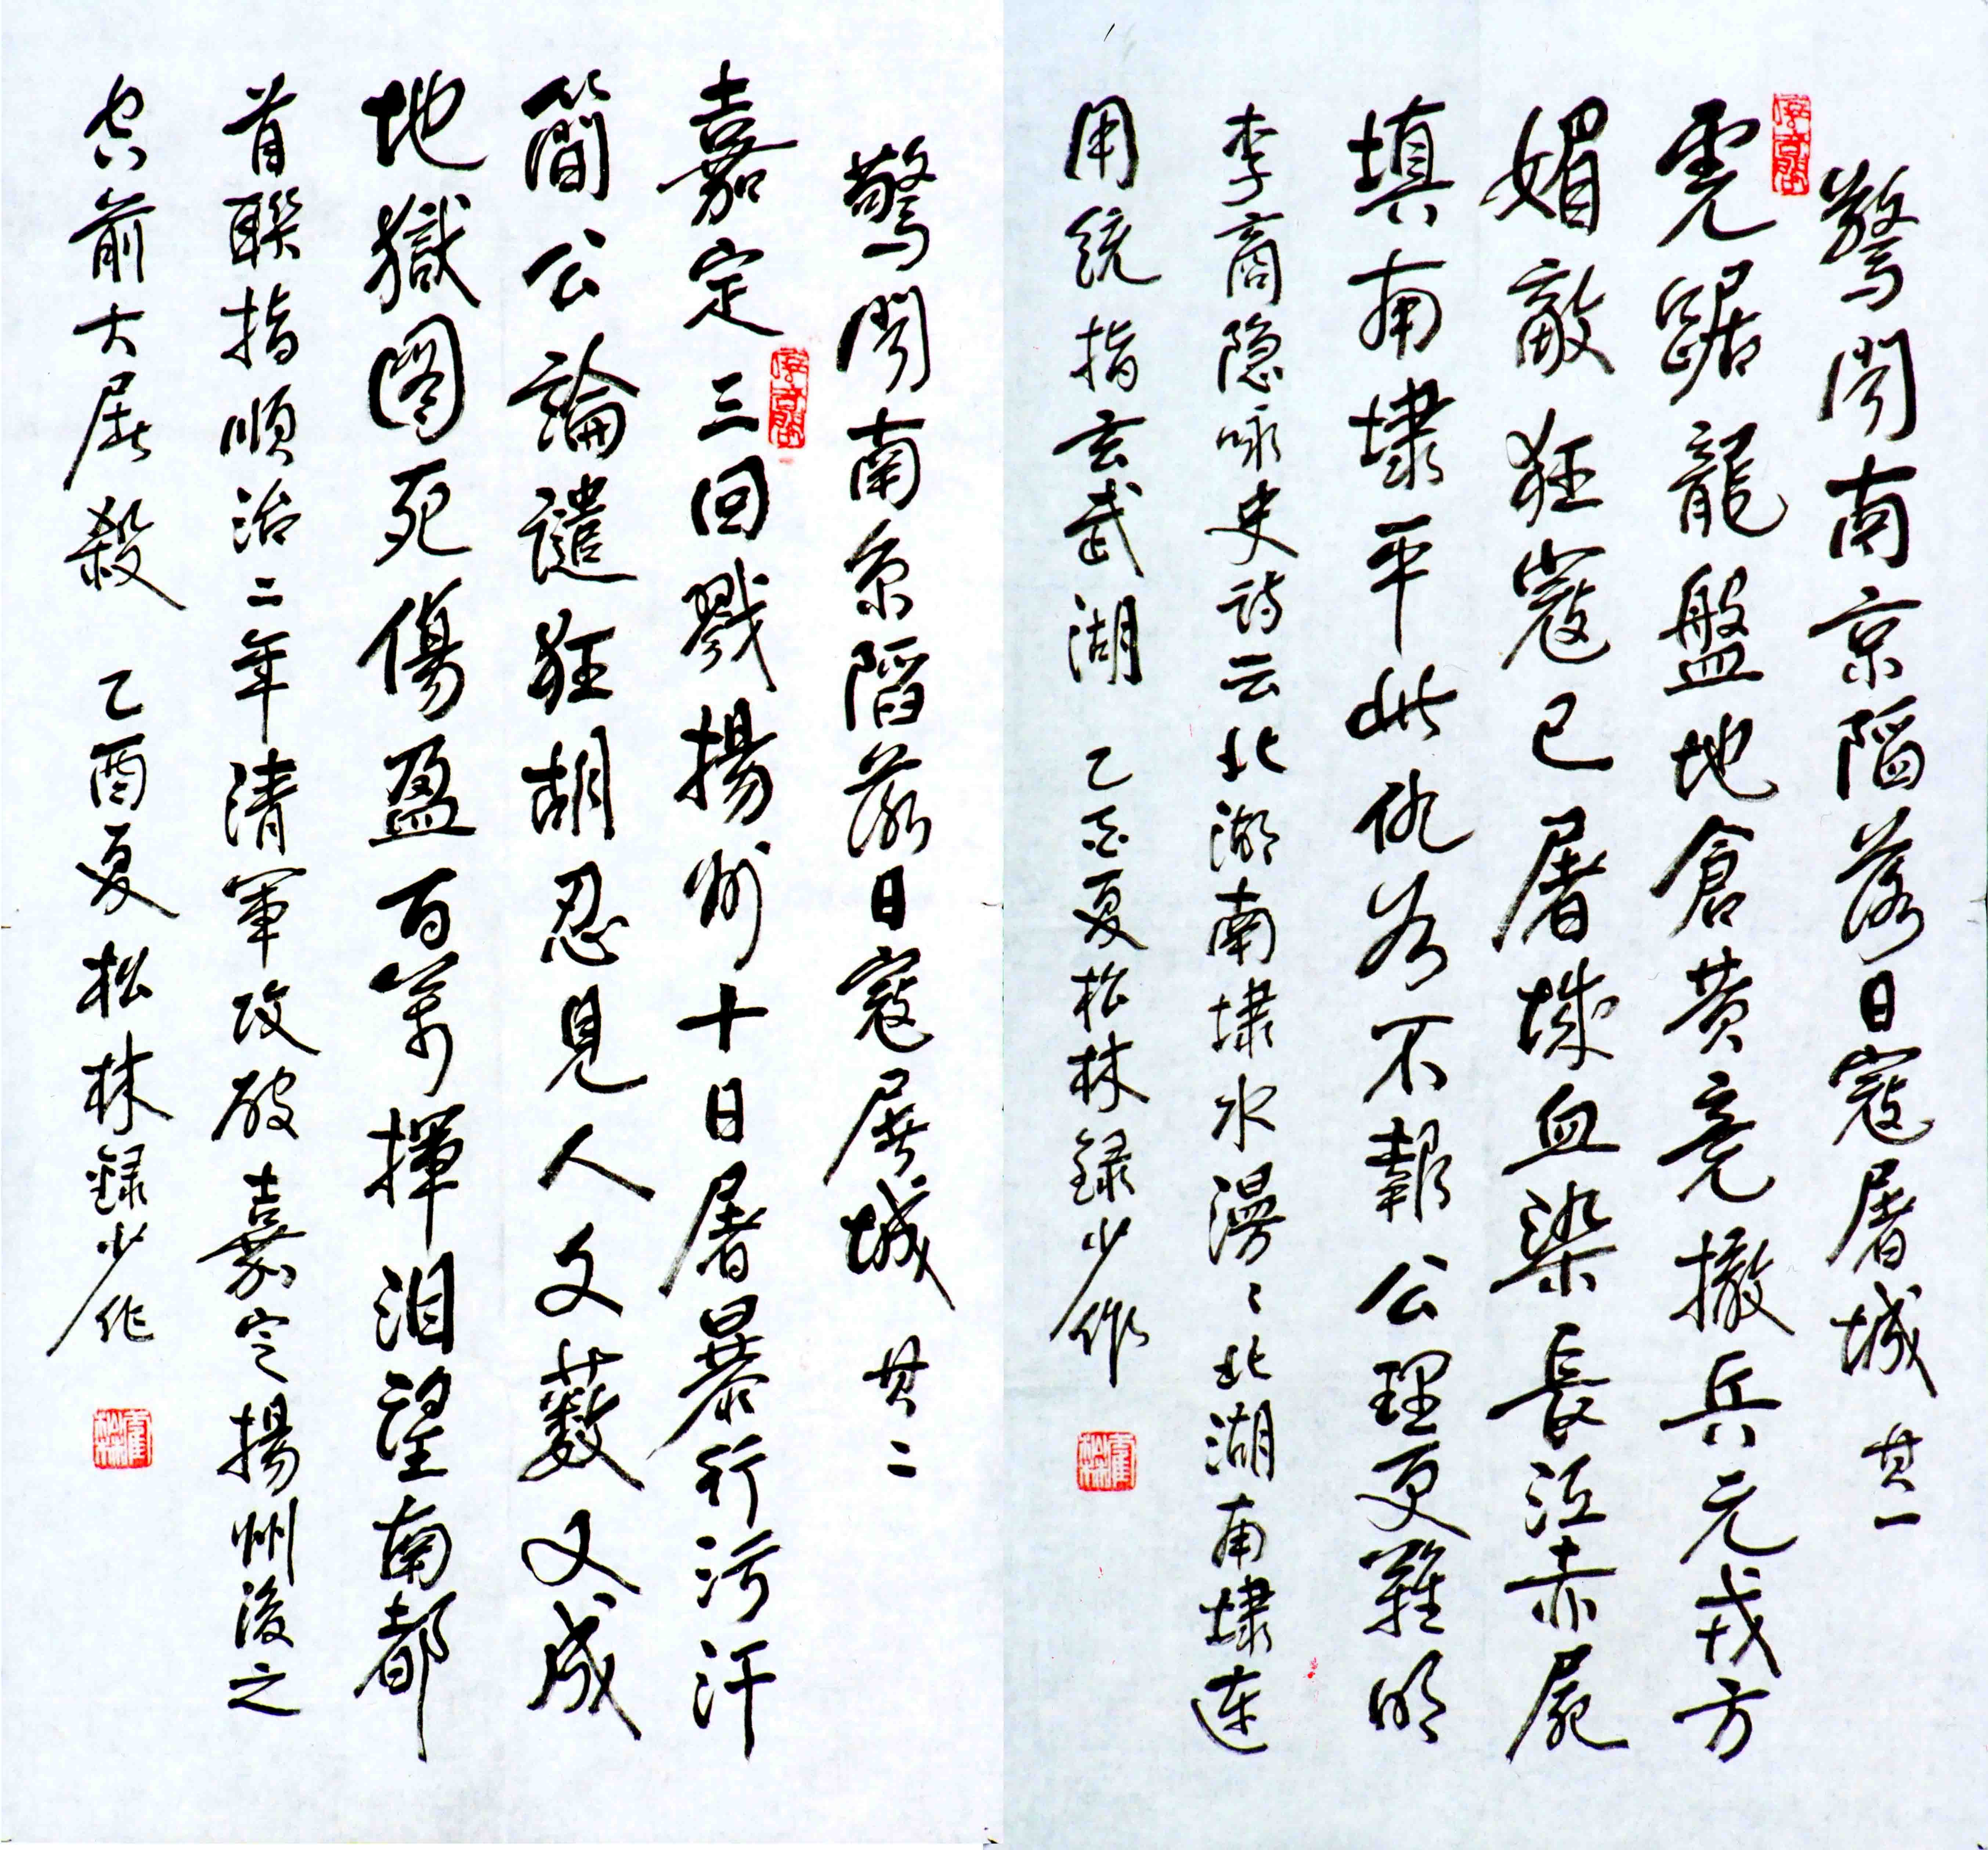 驚聞南京陷落日寇屠城 其一
虎踞龍盤地倉黄竟撤兵元戎方
媚敵狂寇已屠城血染長江赤屍
填南埭平此仇若不報公理更難明
李商隐咏史诗云北湖南埭水漫〻北湖南埭连
用统指玄武湖 乙酉夏松林録少作
驚聞南京陷落日寇屠城 其二
嘉定三回戮揚州十日屠暴行污汗
簡公論譴狂胡忍見人文薮又成
地獄圖死傷盈百萬揮泪望南都
首聯指順治二年清軍攻破嘉定揚州後之
空前大屠殺 乙酉夏松林録少作